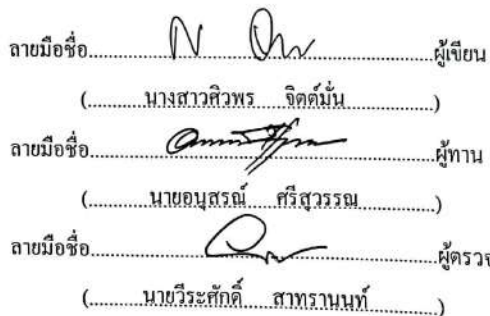 ลายมือชื่อ..........ผู้เขียน
(.......นางสาวศิวพร จิตต์มั่น.......)
ลายมือชื่อ..........ผู้ทาน
(.......นายอนุสรณ์ ศรีสุวรรณ.......)
ลายมือชื่อ..........ผู้ตรวจ
(.......นายวีระศักดิ์ สาทรานนท์.......)